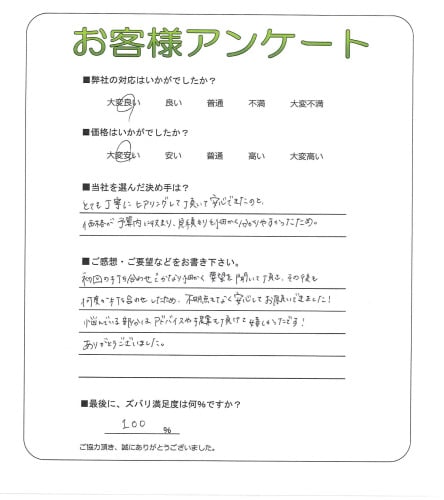 お客様アンケート
■弊社の対応はいかがでしたか?
大変良い 良い 普通 不満 大変不満
■価格はいかがでしたか?
大変安い 安い 普通 高い 大変高い
■当社を選んだ決め手は?
とても丁寧にヒアリングして頂いて安心できたのと、
価格が予算内に収まり、見積もりも細かく分かりやすかったため。
■ご感想・ご要望などをお書き下さい。
初回の打ち合わせでかなり細かく要望を聞いて頂き、その後も
何度か打ち合わせしたため、不明点もなく安心してお願いできました!
悩んでいる部分はアドバイスや提案も頂けて嬉しかったです!
ありがとうございました。
■最後に、ズバリ満足度は何%ですか?
100 %
ご協力頂き、誠にありがとうございました。